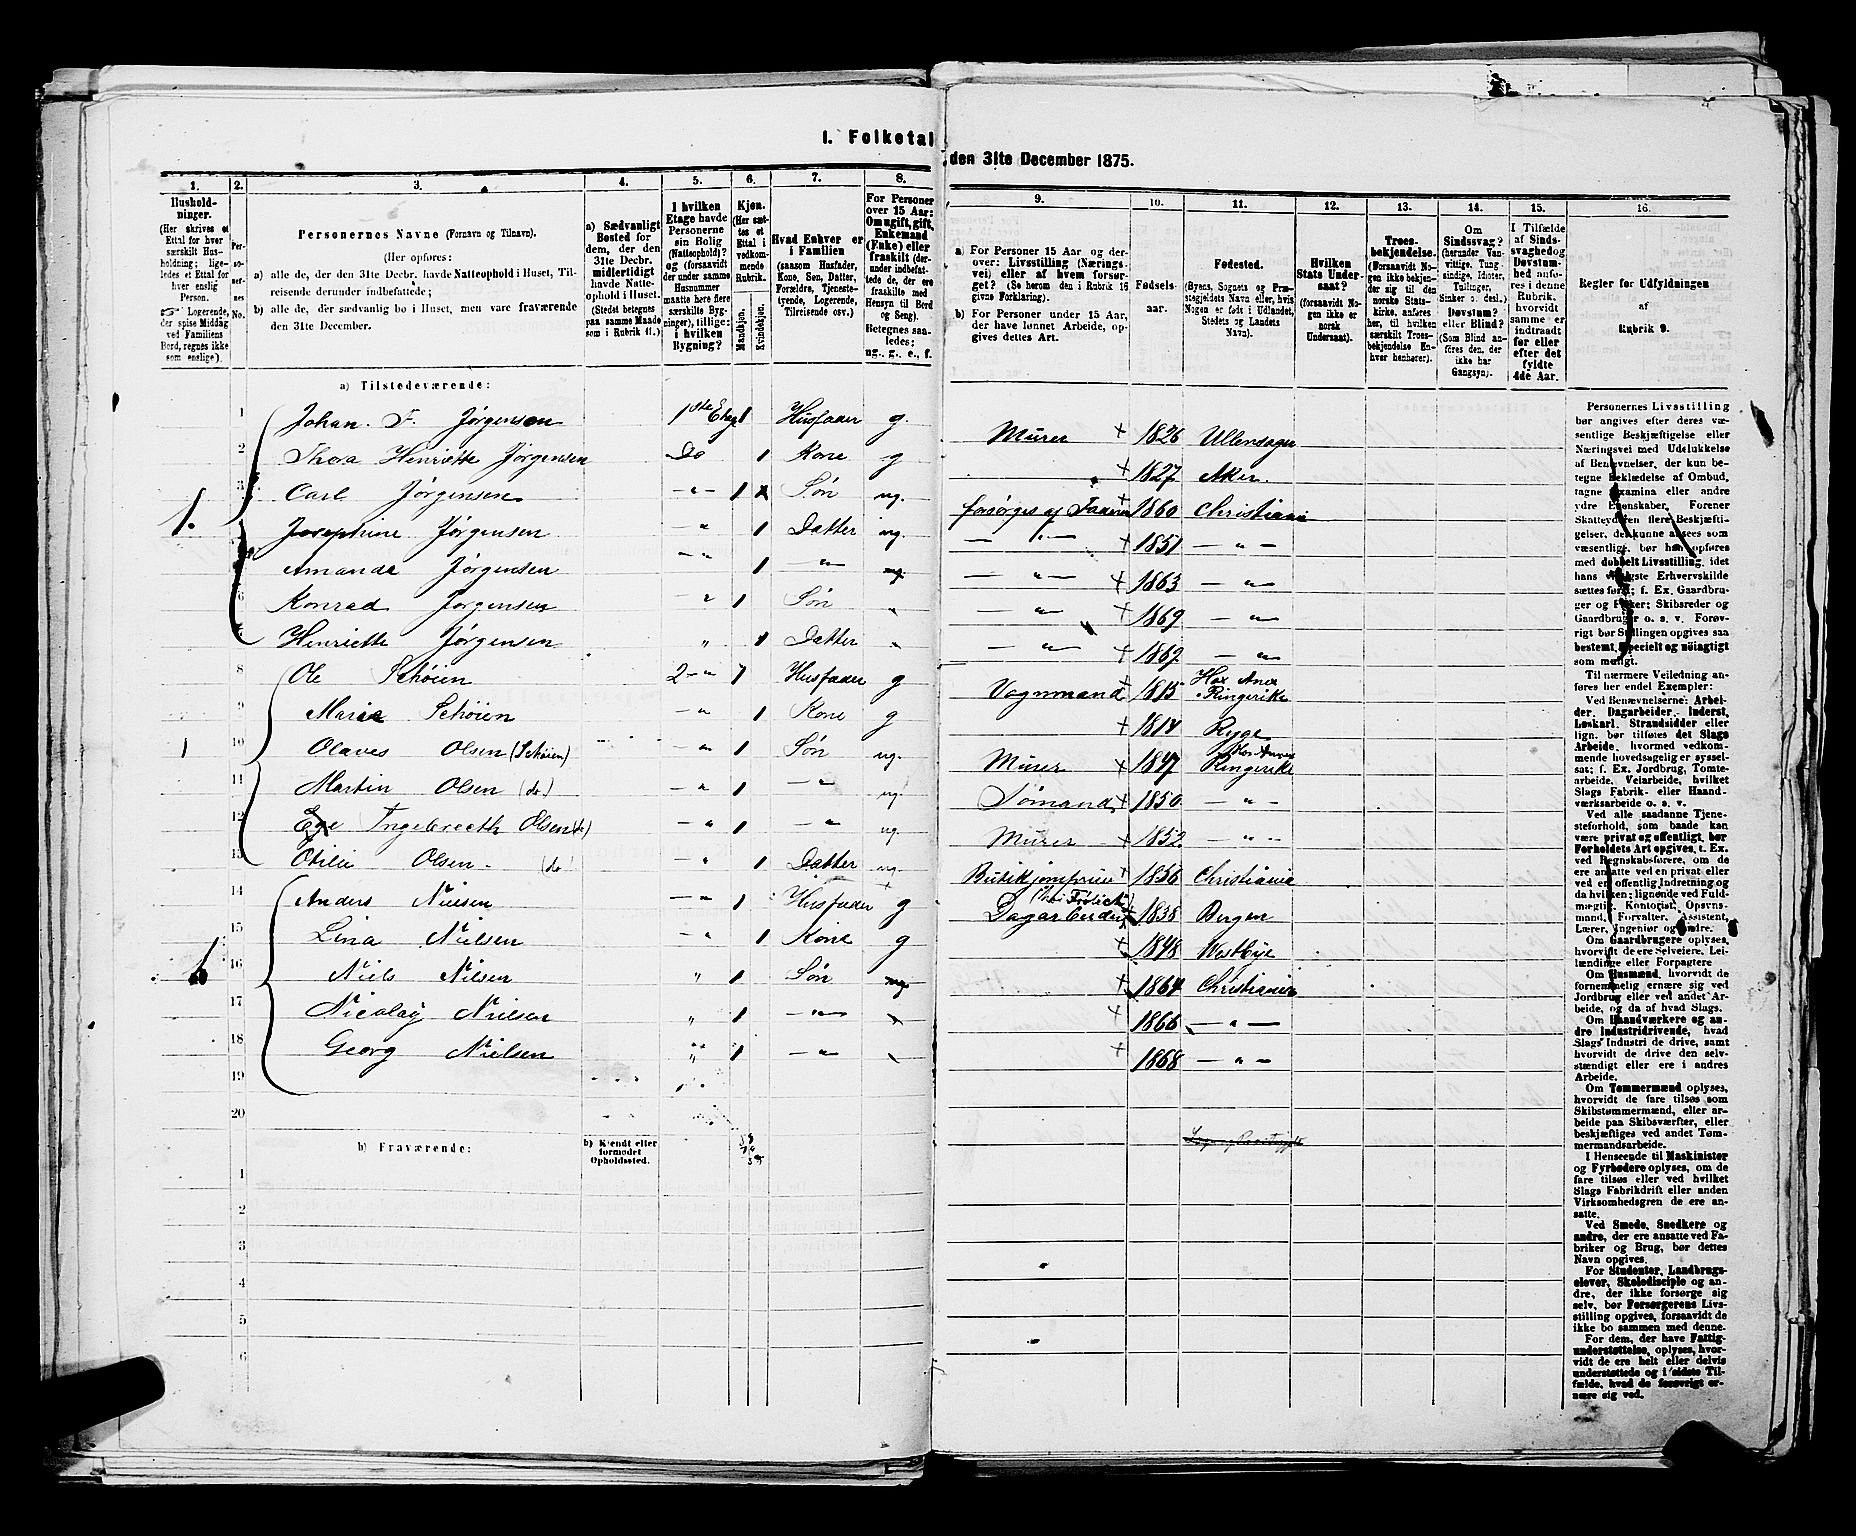 I. Folketal
den 31te December 1875.
1. 2. 3. 4. 5. 6. 7. 8. 9. 10. 11. 12. 13. 14. 15. 16.
Husholdninger.
(Her skrives et Ettal for hver særskilt Husholdning; ligeledes et Ettal for hver enslig Person.
☞ Logerende, der spise Middag ved Familiens Bord, regnes ikke som enslige).
Personernes No.
Personernes Navne (Fornavn og Tilnavn).
(Her opføres:
a) alle de, der den 31te Decbr. havde Natteophold i Huset, Tilreisende derunder indbefattede;
b) alle de, der sædvanlig bo i Huset, men vare fraværende den 31te December.
a) Sædvanligt Bosted for dem, der den 31te Decbr. midlertidigt havde Natteophold i Huset. (Stedet betegnes paa samme Maade som i Rubrik 11.)
I hvilken Etage havde Personerne sin Bolig (Natteophold)? og (forsaavidt der under samme Husnummer maatte høre flere særskilte Bygninger), tillige: i hvilken Bygning?
Kjøn. (Her sættes et Ettal i vedkommende Rubrik.
Mandkjøn. Kvindekjøn.
Hvad Enhver er i Familien
(saasom Husfader, Kone, Søn, Datter, Forældre, Tjenestetyende, Logerende, Tilreisende osv.)
For Personer over 15 Aar: Om ugift, gift, Enkemand (Enke) eller fraskilt (derunder indbefattede de, der ere fraskilte med Hensyn til Bord og Seng).
Betegnes saaledes: ug., g., e., f.
a) For Personer 15 Aar og derover: Livsstilling (Næringsvei) eller af hvem forsørget? (Se herom den i Rubrik 16 givne Forklaring).
b) For Personer under 15 Aar, der have lønnet Arbeide, opgives dettes Art.
Fødselsaar.
Fødested.
(Byens, Sognets og Præstegjeldets Navn eller, hvis Nogen er født i Udlandet, Stedets og Landets Navn).
Hvilken Stats Undersaat?
(forsaavidt Nogen ikke er norsk Undersaat).
Troesbekjendelse.
(Forsaavidt Nogen ikke bekjender sig til den norske Statskirke, anføres her, til hvilken særskilt Troesbekjendelse Enhver henhører).
Om Sindssvag? (herunder Vanvittige, Tungsindige, Idioter, Tullinger, Sinker o. desl.) Døvstum? eller Blind? (Som Blind anføres den, der ikke har Gangsyn).
I Tilfælde af Sindssvaghed og Døvstumhed anføres i denne Rubrik, hvorvidt samme er indtraadt før eller efter det fyldte 4de Aar.
Regler for Udfyldningen af Rubrik 9.
a) Tilstedeværende:
1 Johan. F. Jørgensen 1ste Etag 1 Husfader g. Murer + 1826 Ullensager
2 Thora Henriette Jørgensen Do 1 Kone g + 1827 Aker.
3 Carl Jørgensen - " - 1 Søn ug. forsørges af Faderen 1860 Christiania
1. Josephine Jørgensen - " 1 Datter ug. - " - + 1851 - " -
Amanda Jørgensen - " 1 - " - ug - " - + 1863 - " -
6 Konrad Jørgensen - " 1 Søn " - " - + 1869 - " -
Henriette Jørgensen " 1 Datter " - " - + 1867 - "
8 Ole Schøien 2 - " 1 Husfader g Vognmand + 1815 Ringerike
9 Marie Schøien - " 1 Kone g + 1814 Ryge
1 10 Olaves Olsen (Schøien) - " 1 Søn ug. Murer + 1847 Ringerike
11 Martin Olsen (do) - " 1 - " ug Sømand + 1850 - " -
12 Ingebreeth Olsen (do) - " 1 - " ug. Murer + 1852 - " -
13 Otilie Olsen - (do - " 1 Datter ug. Butikjomfrue + 1856 Christiania
14 Anders Nielsen - " 1 Husfader g Dagarbeider + 1838 Bergen
15 Lina Nielsen - " 1 Kone g + 1848 Westbye
1 16 Niels Nielsen " 1 Søn ug + 1864 Christiania
17 Nicolay Nielsen " 1 - " - " + 1866 - " -
18 Georg Nielsen " 1 - " " + 1868 - " -
19
20
b) Fraværende:
b) Kjendt eller formodet Opholdssted.
1
2
3
4
5
6
Personernes Livsstilling bør angives efter deres væsentlige Beskjæftigelse eller Næringsvei med Udelukkelse af Benævnelser, der kun betegne Beklædelse af Ombud, tagne Examina eller andre ydre Egenskaber. Forener Skatteyderen flere Beskjæftigelser, der kunne ansees som væsentlige, bør han opføres med dobbelt Livsstilling, idet hans vigtigste Erhvervskilde sættes først; f. Ex. Gaardbruger og Fisker; Skibsreder og Gaardbruger o. s. v. Forøvrigt bør Stillingen opgives saa bestemt, specielt og nöiagtigt som muligt.
Til nærmere Veiledning anføres her endel Exempler:
Ved Benævnelserne: Arbeider, Dagarbeider, Inderst, Løskarl, Strandsidder eller lign. bør tilføies det Slags Arbeide, hvormed vedkommende hovedsagelig er sysselsat; f. Ex. Jordbrug, Tomtearbeide, Veiarbeide, hvilket Slags Fabrik- eller Haandværksarbeide o. s. v.
Ved alle saadanne Tjenesteforhold, som baade kan være privat og offentligt, bør Forholdets Art opgives, t. Ex. ved Regnskabsførere, om de ere ansatte ved en privat eller ved en offentlig Indretning og da hvilken; lignende ved Fuldmægtig, Kontorist, Opsynsmand, Forvalter, Assistent, Lærer, Ingeniør og Andre.
Om Gaardbrugere oplyses, hvorvidt de ere Selveiere, Leilændinge eller Forpagtere
Om Husmænd, hvorvidt de fornemmelig ernære sig ved Jordbrug eller ved andet Arbeide, og da af hvad Slags.
Om Haandværkere og andre Industridrivende, hvad Slags Industri de drive, samt hvorvidt de drive den selvstændigt eller ere i andres Arbeide.
Om Tømmermænd oplyses, hvorvidt de fare tilsøs som Skibstømmermænd, eller arbeide paa Skibsværfter, eller beskjæftiges ved andet Tømmermandsarbeide.
I Henseende til Maskinister og Fyrbødere oplyses, om de fare tilsøs eller ved hvilket Slags Fabrikdrift eller anden Virksomhedsgren de ere ansatte.
Ved Smede, Snedkere og andre, der ere ansatte ved Fabriker og Brug, bør dettes Navn opgives.
For Studenter, Landbrugselever, Skoledisciple og andre, der ikke forsørge sig selv, bør Forsørgerens Livsstilling opgives, forsaavidt de ikke bo sammen med denne.
For dem, der have Fattigunderstøttelse, oplyses, hvorvidt de ere helt eller delvis understøttede og i sidste Tilfælde, hvad de forøvrigt ernære sig ved.